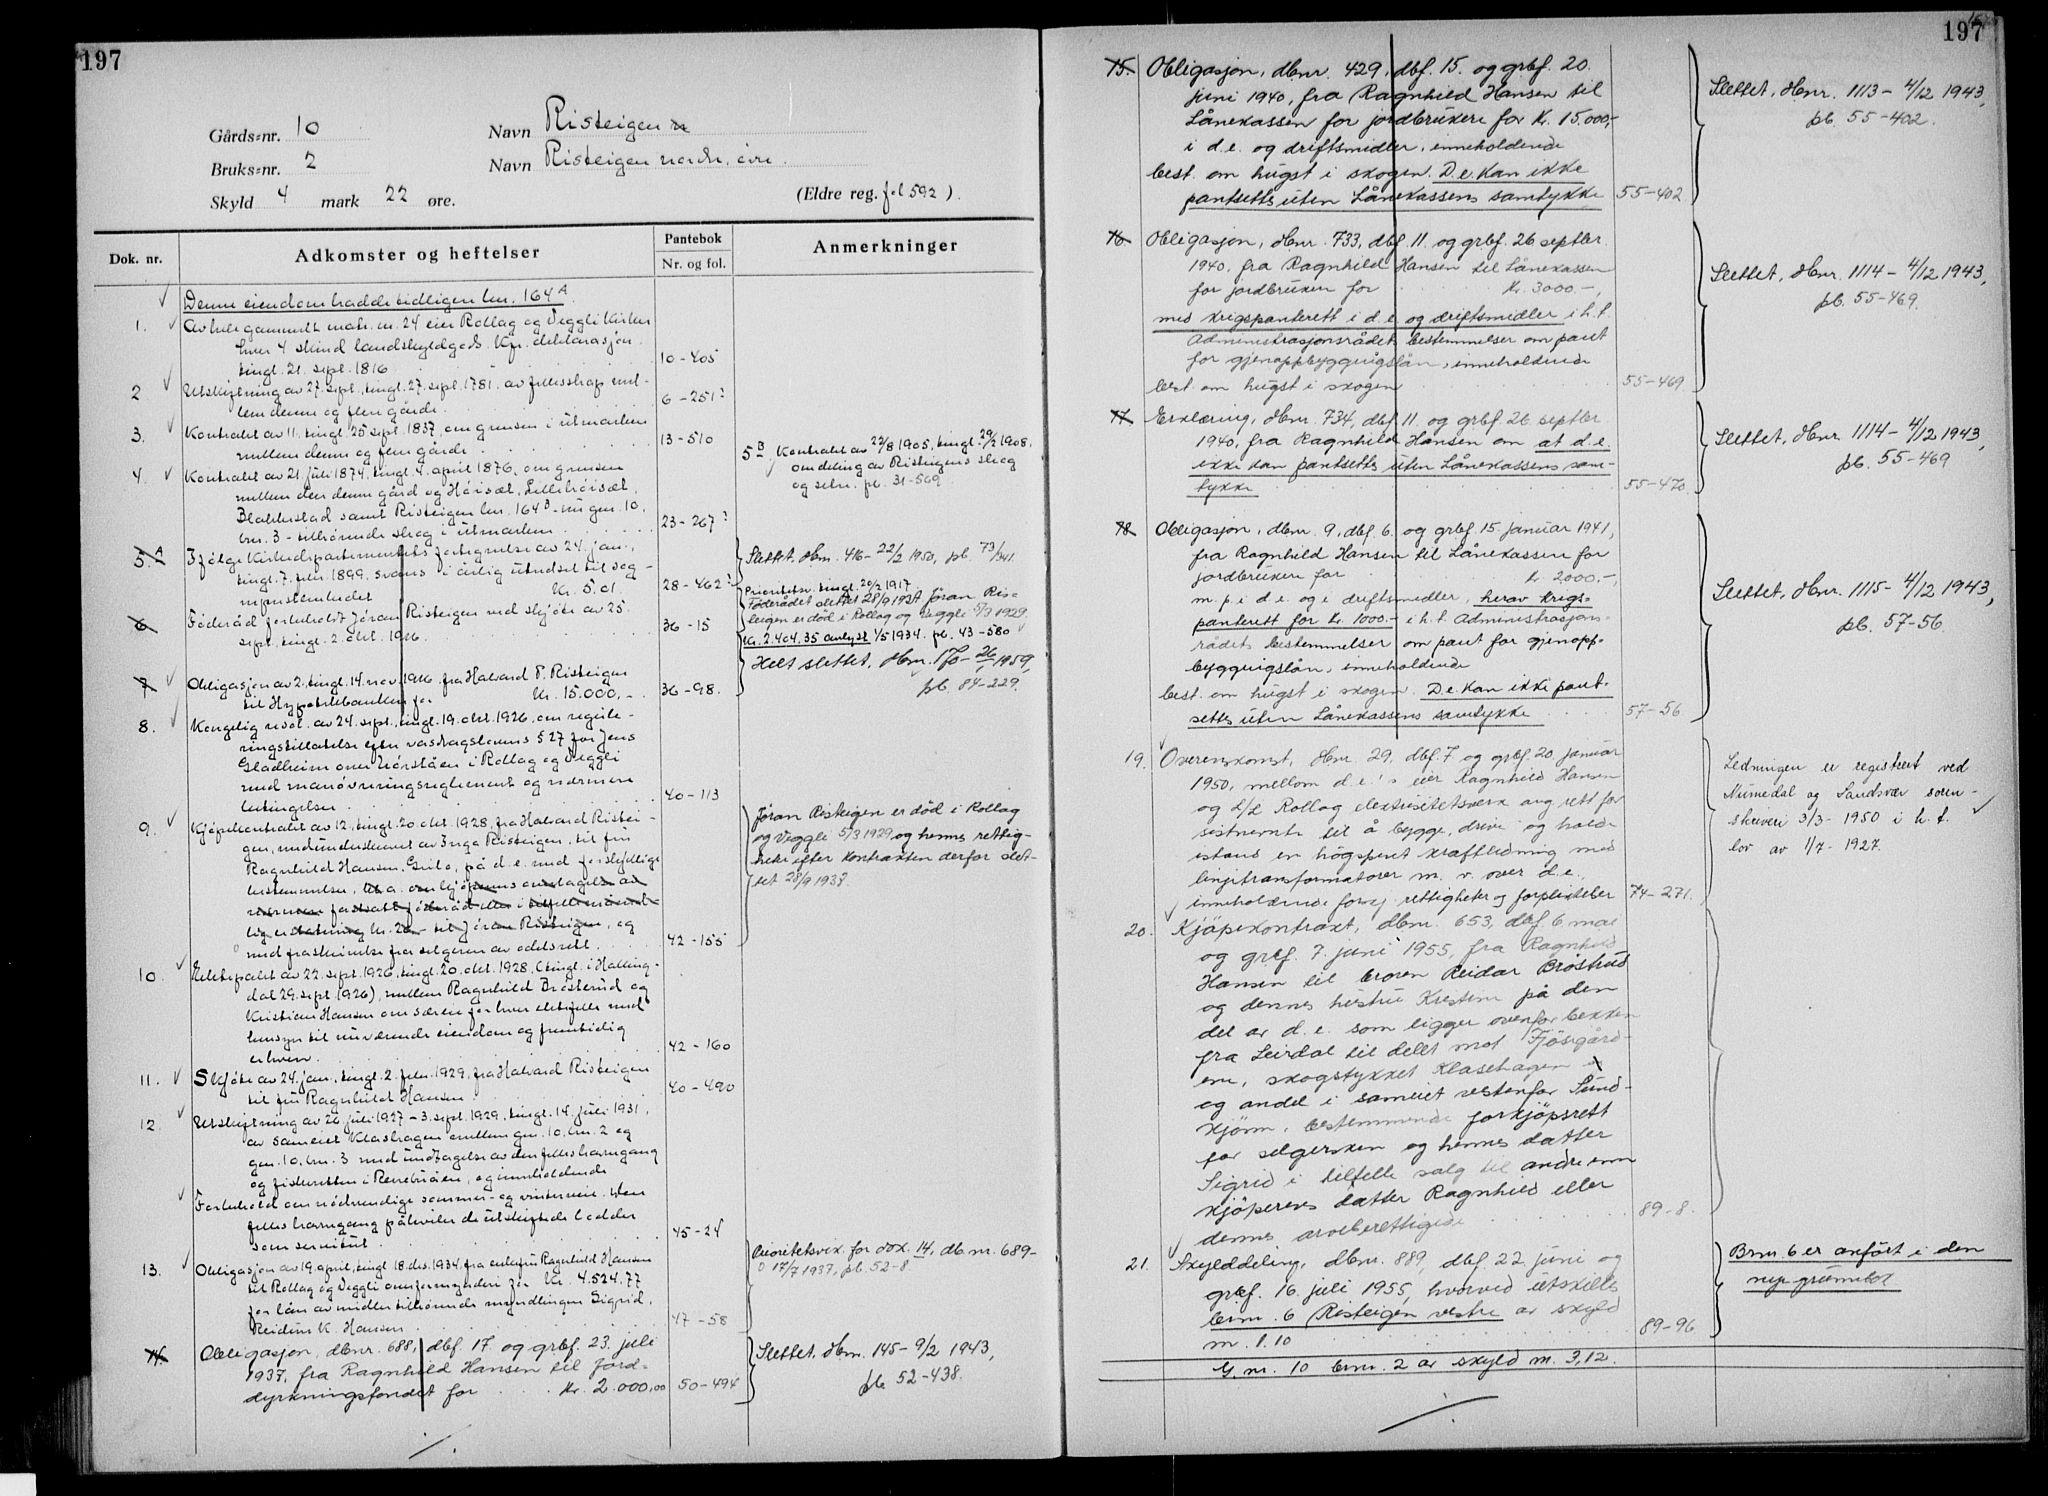 197
Gårds=nr. 10 Navn Risteigen
Bruks=nr. 2 Navn Risteigen nordre, øvre.
Skyld 4 mark 22 øre. (Eldre reg. fol 592).
Dok. nr. Adkomster og heftelser Pantebok Nr. og fol. Anmerkninger
Denne eiendom hadde tidligere lnr. 164 A
1. Av hele gammelt matr. nr. 24 eier Rollag og Veggli Kirker
hver 4 skind landskyldgods. Kfr. deklarasjon
tingl. 21. sept. 1816. 10-405
2 Utskiftning av 27. sept., tingl. 27. sept. 1781, av fellesskap mel-
lem denne og flere gårde. 6-251?
3. Kontrakt av 11., tingl. 25 sept. 1837, om grensen i utmarken
mellem denne og flere gårde. 13-510
4. Kontrakt av 21. juli 1874, tingl. 4. april 1876, om grensen
mellem denne gård og Høisæt, Lillehöisæt,
Blakkestad samt Risteigen lnr. 164 B - nu gnr. 10,
bnr. 3 - tilhørende skog i utmarken 23-267?
5 B Kontrakt av 22/8 1905, tingl. 29/2 1908,
om deling av Risteigens skog
og seter. pb. 31-569
5 A Ifølge Kirkedepartementets fortegnelse av 24. jan.,
tingl. 7. febr. 1899, svares i årlig utredsel til sog-
neprestembedet Kr. 5.01 28-462?
Slettet. Dbnr. 416 - 22/2 1950, pb. 73/341.
6 Föderåd forbeholdt Jöran Risteigen ved skjøte av 25.
sept., tingl. 2. okt. 1916. 36-15
Prioritetsv. tingl. 20/2 1917
Föderådet slettet 28/9 1937. Jöran Ris-
teigen er död i Rollag og Veggli 5/3 1929
7 Obligasjon av 2., tingl. 14. nov. 1916, fra Halvard P. Risteigen
til Hypotekbanken for Kr. 15.000,- 36-98.
Kr. 2.404.35 avlyst 1/5 1934. pb. 43-580
Helt slettet. Dbnr. 170 - 26/1 1959,
pb. 84-229.
8. Kongelig resol. av 24. sept., tingl. 19. okt. 1926, om regule-
ringstillatelse efter vasdragslovens § 27 for Jens
Gladheim over Nörståen i Rollag og Veggli
med manövreringsreglement og nærmere
betingelser. 40-113
9. Kjöpekontrakt av 12., tingl. 20. okt. 1928, fra Halvard Ristei-
gen, medunderskrevet av Inga Risteigen, til fru
Ragnhild Hansen, Grilo, på d. e. med forskjellige
bestemmelser, bl. a. om kjöperens overtagelse av
lig erstatning kr. 20.- til Jöran Risteigen, og
med fraskrivelse fra selgeren av odelsrett. 42-155
Jöran Risteigen er död i Rollag
og Veggli 5/3 1929, og hennes rettig-
heter efter kontrakten derfor slet-
tet 28/9 1937.
10. Ektepakt av 22. sept. 1926, tingl. 20. okt. 1928, (tingl. i Halling-
dal 29. sept. 1926), mellem Ragnhild Brøsterud og
Kristian Hansen om særeie for hver ektefelle med
hensyn til nuværende eiendom og fremtidig
erhverv. 42-160
11. Skjöte av 24. jan., tingl. 2. febr. 1929, fra Halvard Risteigen
til fru Ragnhild Hansen 40-490
12. Utskiftning av 26. juli 1927 - 3. sept. 1929, tingl. 14. juli 1931,
av sameiet Klashagen mellem gnr. 10, bnr. 2 og
gnr. 10, bnr. 3 med undtagelse av den felles havnegang
og fiskeretten i Renebuåen, og inneholdende
Forbehold om nödvendige sommer- og vinterveie. Den
felles havnegang påhviler de utskiftede lodder
som servitut. 45-24
13. Obligasjon av 19. april, tingl. 18. des. 1934, fra enkefru Ragnhild Hansen
til Rollag og Veggli overformynderi for Kr. 4.524.77
for lån av midler tilhørende myndlingen Sigrid,
Reidun K. Hansen 47-58
Prioritetsvik. for dok. 14, db. nr. 689-
17/7 1937, pb. 52-8
14. Obligasjon, dbnr. 688, dbf. 17. og grbf. 23. juli
1937, fra Ragnhild Hansen til Jord=
dyrkningsfondet for kr. 2.000,00 50-494
Slettet. Dbnr. 145 - 9/2 1943,
pb. 52-438.
197
15. Obligasjon, dbnr. 429, dbf. 15. og grbf. 20.
juni 1940, fra Ragnhild Hansen til
Lånekassen for jordbrukere for Kr. 15.000,-
i d.e. og driftsmidler, inneholdende
best. om hugst i skogen. D.e. kan ikke
pantsettes uten Lånekassens samtykke 55-402
Slettet, dbnr. 1113 - 4/12 1943,
pb. 55-402.
16 Obligasjon, dbnr. 733, dbf. 11. og grbf. 26 septbr.
1940, fra Ragnhild Hansen til Lånekassen
for jordbrukere for kr. 3000.-,
med krigspanterett i d.e. og driftsmidler i h.t.
Administrasjonsrådets bestemmelser om pant
for gjenoppbyggingslån, inneholdende
best. om hugst i skogen 55-469
Slettet, dbnr. 1114 - 4/12 1943,
pb. 55-469.
17 Erklæring, dbnr. 734, dbf. 11. og grbf. 26. septbr
1940, fra Ragnhild Hansen om at d.e.
ikke kan pantsettes uten Lånekassens sam-
tykke 55-470.
Slettet, dbnr. 1114 - 4/12 1943,
pb. 55-469
18 Obligasjon, dbnr. 9, dbf. 6. og grbf. 15. januar 1941,
fra Ragnhild Hansen til Lånekassen for
jordbrukere for kr. 2000.-,
m. p. i d. e. og i driftsmidler, herav krigs=
panterett for kr. 1000.- i h.t. Administrasjons-
rådets bestemmelser om pant for gjenopp=
byggingslån, inneholdende
best. om hugst i skogen. D.e. kan ikke pant=
settes uten Lånekassens samtykke 57-56
Slettet, dbnr. 1115 - 4/12 1943,
pb. 57-56.
19. Overenskomst, dbnr. 29, dbf. 7 og grbf. 20. januar
1950, mellom d.e.'s eier Ragnhild Hansen
og A/L Rollag elektrisitetsverk ang. rett for
sistnevnte til å bygge, drive og holde
istand en högspent kraftledning med
linjetransformatorer m. v. over d.e.,
inneholdende forsk. rettigheter og forpliktelser 74-271.
Ledningen er registrert ved
Numedal og Sandsvær soren-
skriveri 3/3-1950 i h. t.
lov av 1/7-1927.
20. Kjöpekontrakt, dbnr. 653, dbf. 6. mai
og grbf. 7. juni 1955, fra Ragnhild
Hansen til broren Reidar Bröstrud
og dennes hustru Kristine på den
del av d.e. som ligger ovenfor bekken
fra Leirdal til delet mot Fjösgård-
ene, skogstykket Klasehagen
og andel i sameiet vestenfor Sund-
kjönn, bestemmende forkjöpsrett
for selgersken og hennes datter
Sigrid i tilfelle salg til andre enn
kjöperens datter Ragnhild eller
dennes arveberettigede 89-8.
21. Skylddeling, dbnr. 889, dbf. 22. juni og
grbf. 16. juli 1955, hvorved utskilles
bnr. 6 Risteigen vestre av skyld
m. 1.10 89-96
Bnr. 6 er anført i den
nye grunnbok
G. nr. 10 bnr. 2 av skyld m. 3,12.